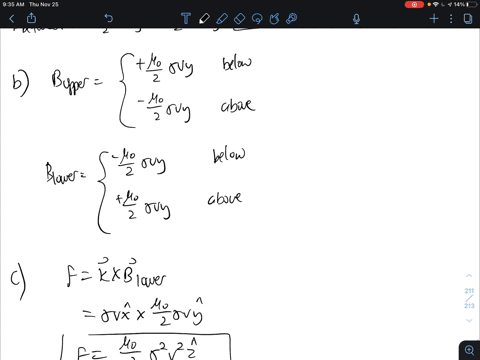 9:35 AM Thu Nov 25
14%
b) B upper = { +μ₀/2 σvy below
-μ₀/2 σvy above
B lower = { -μ₀/2 σvy below
+μ₀/2 σvy above
c) f = K⃗ × B⃗ lower
= σv x̂ × μ₀/2 σv ŷ
f = μ₀/2 σ² v² ẑ
211
/
213